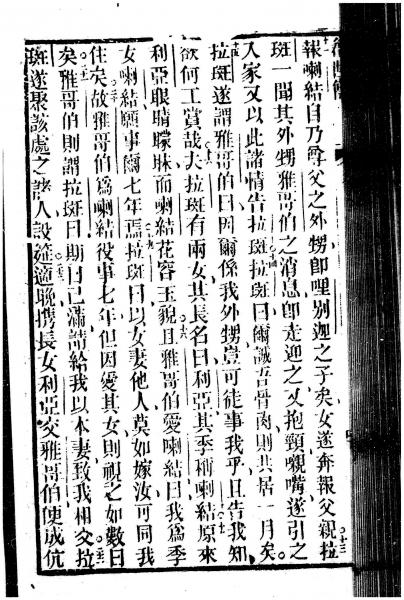 報喇結自乃尊父之外甥卽哩別迦之子矣女遂奔報父親拉
班一聞其外甥雅哥伯之消息卽走迎之又抱頸嚫嘴遂引之
入家又以此諸情告拉班拉班曰爾誠吾骨肉則共居一月矣
拉班遂謂雅哥伯曰因爾係我外甥豈可徒事我乎且告我知
欲何工賞哉夫拉班有兩女其長名曰利亞其季稱喇結原來
利亞眼睛矇昧而喇結花容玉貌且雅哥伯愛喇結曰我爲季
女喇結願事爾七年焉拉班曰以女妻他人莫如嫁汝可同我
住矣故雅哥伯爲喇結役事七年但因愛其女則視之如數日
矣雅哥伯則謂拉班曰期日已滿請給我以本妻致我相交拉
班遂聚該處之諸人設筵適晚携長女利亞交雅哥伯使成伉